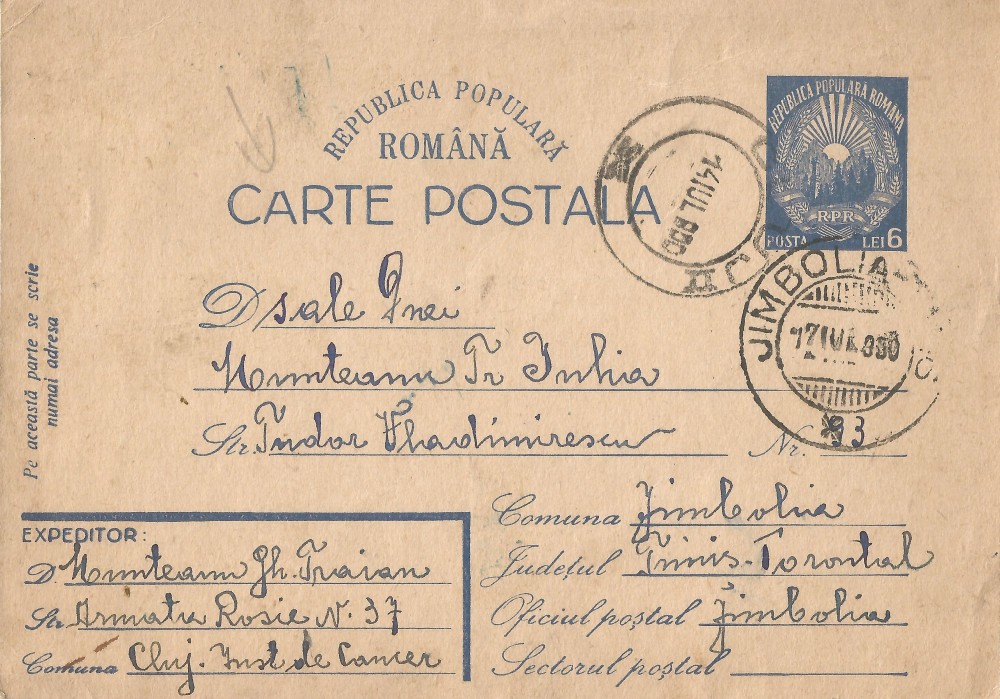 REPUBLICA POPULARĂ
ROMÂNĂ
CARTE POSTALA
REPUBLICA POPULARA ROMANA
RPR
POSTA LEI 6
14 IUL 950
JIMBOLIA
17 IUL 950
Pe această parte se scrie
numai adresa
Dsale Dnei
Munteanu Tr Iulia
Str. Tudor Vladimirescu Nr. 93
Comuna Jimbolia
Județul Timis-Torontal
Oficiul poștal Jimbolia
Sectorul poștal
EXPEDITOR:
D Munteanu Gh. Traian
Str. Armata Rosie N. 37
Comuna Cluj. Inst de Cancer